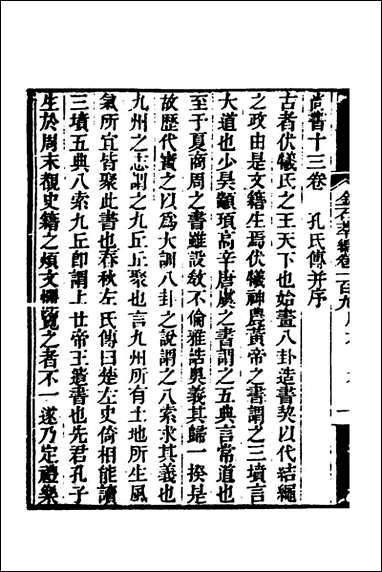 尚書十三卷　孔氏傳并序
古者伏犧氏之王天下也始畫八卦造書契以代結繩
之政由是文籍生焉伏犧神農黃帝之書謂之三墳言
大道也少昊顓頊高辛唐虞之書謂之五典言常道也
至于夏商周之書雖設敎不倫雅誥奧義其歸一揆是
故歷代寶之以爲大訓八卦之說謂之八索求其義也
九州之志謂之九丘丘聚也言九州所有土地所生風
氣所宜皆聚此書也春秋左氏傳曰楚左史倚相能讀
三墳五典八索九丘卽謂上世帝王遺書也先君孔子
生於周末覩史籍之煩文懼覽之者不一遂乃定禮樂
金石萃編卷一百九